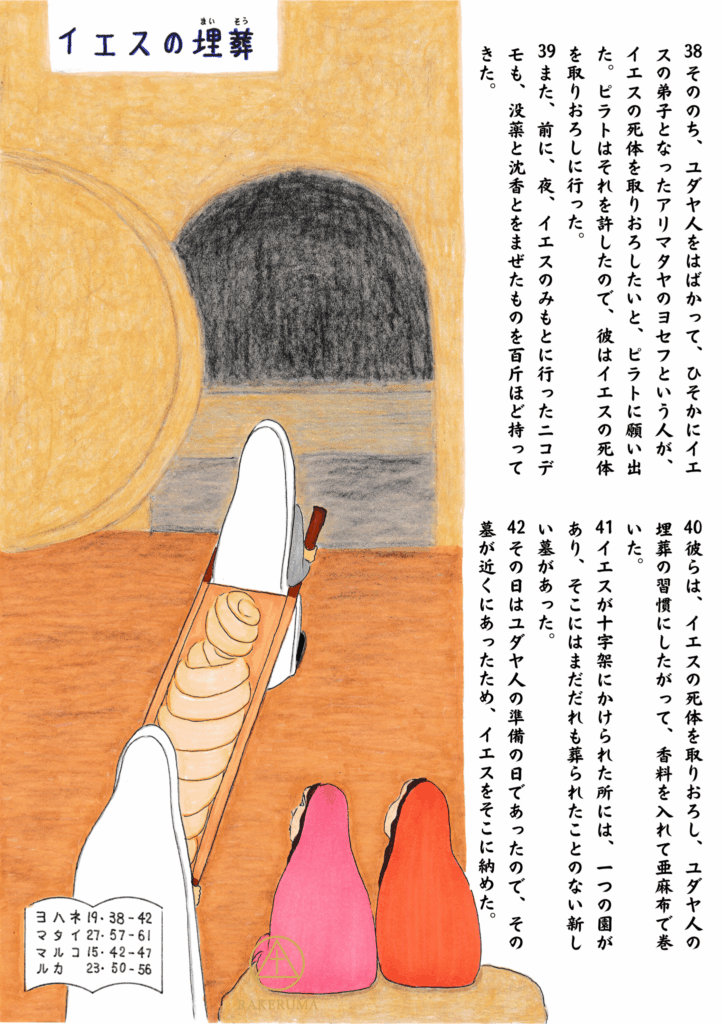 イエスの埋葬
まい そう
38 そののち、ユダヤ人をはばかって、ひそかにイエ
スの弟子となったアリマタヤのヨセフという人が、
イエスの死体を取りおろしたいと、ピラトに願い出
た。ピラトはそれを許したので、彼はイエスの死体
を取りおろしに行った。
39 また、前に、夜、イエスのみもとに行ったニコデ
モも、没薬と沈香とをまぜたものを百斤ほど持って
きた。
40 彼らは、イエスの死体を取りおろし、ユダヤ人の
埋葬の習慣にしたがって、香料を入れて亜麻布で巻
いた。
41 イエスが十字架にかけられた所には、一つの園が
あり、そこにはまだだれも葬られたことのない新し
い墓があった。
42 その日はユダヤ人の準備の日であったので、その
墓が近くにあったため、イエスをそこに納めた。
ヨハネ 19・38-42
マタイ 27・57-61
マルコ 15・42-47
ルカ 23・50-56
RAKERUMA